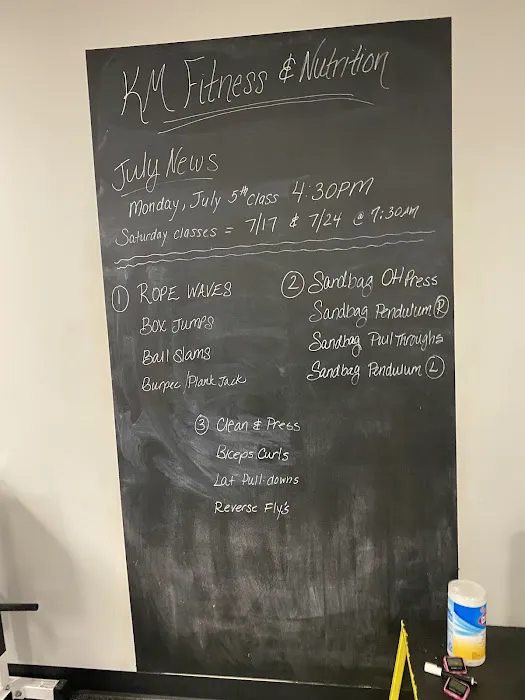 KM Fitness & Nutrition
July News
Monday, July 5th Class 4:30PM
Saturday classes = 7/17 & 7/24 @ 7:30AM
① ROPE WAVES
Box Jumps
Ball Slams
Burpee/Plank Jack
② Sandbag OH Press
Sandbag Pendulum Ⓡ
Sandbag Pull Throughs
Sandbag Pendulum Ⓛ
③ Clean & Press
Biceps Curls
Lat Pull-downs
Reverse Fly's